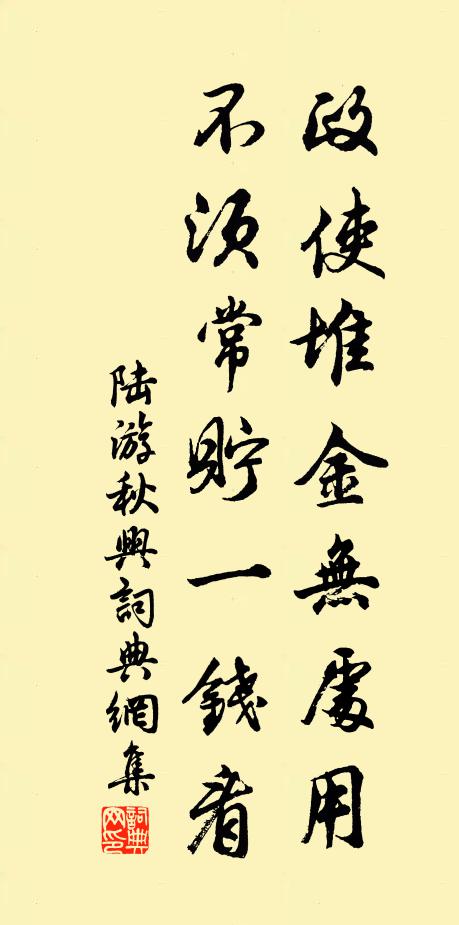 政使堆金無處用
不須常貯一錢看
陆游秋興詞典網集
詞典
网印